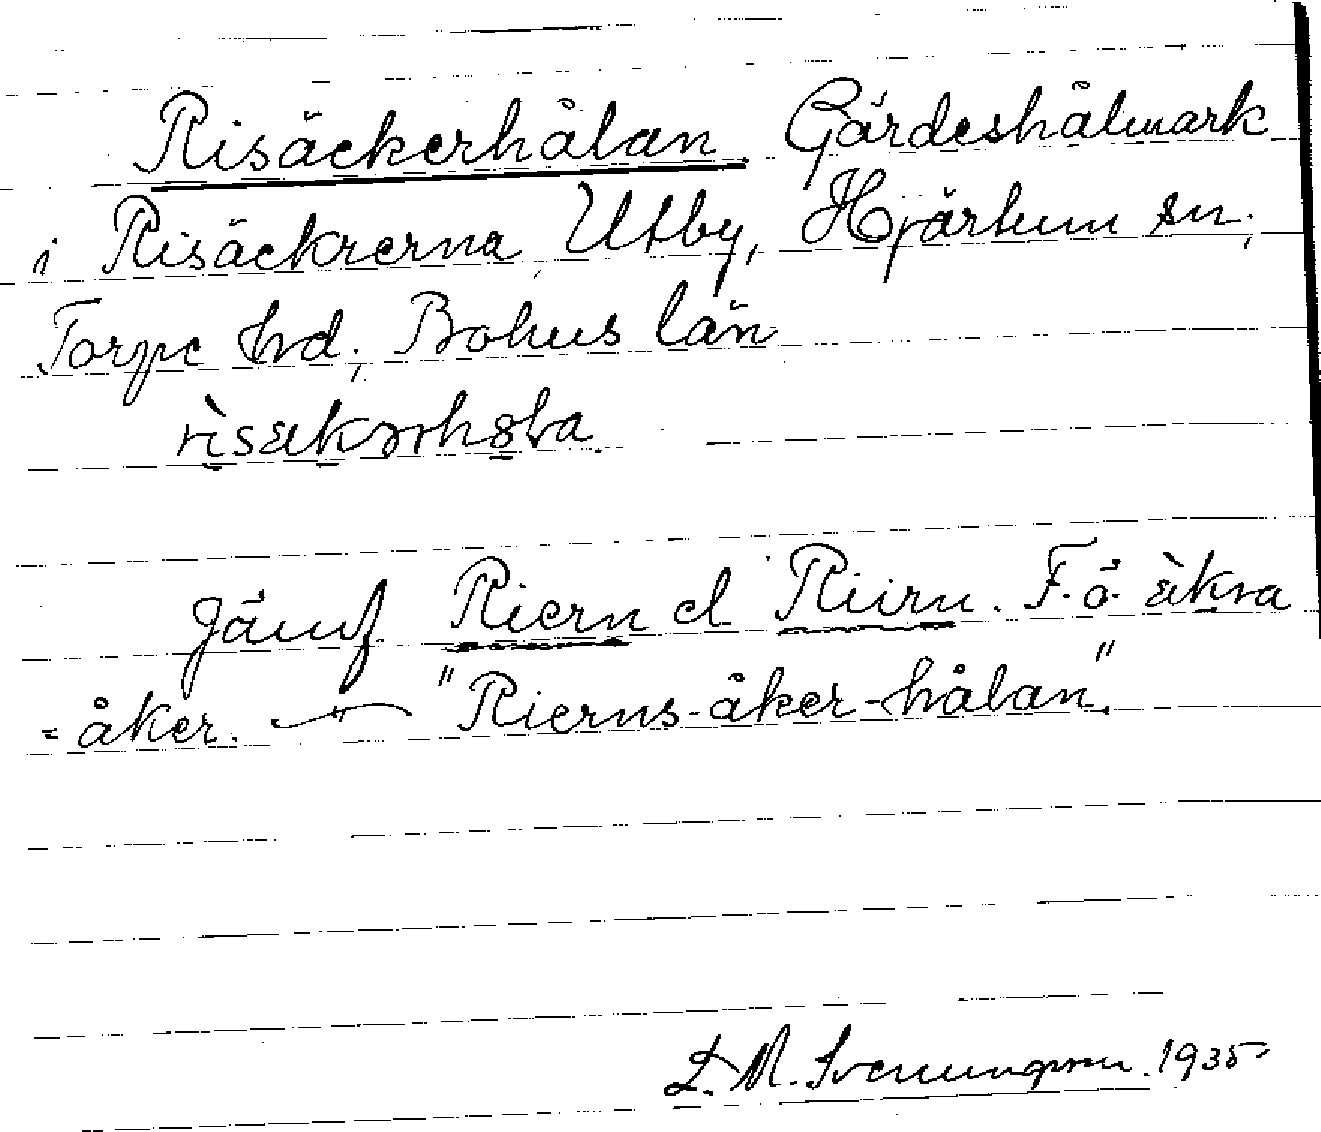 Risäckerhålan. Gärdeshålmark
i Risäckrerna, Utby, Hjärtum sn,
Torpe hrd, Bohus län
Jämf. Riern el Riirn. F.ö. äkra
= åker. — " — "Rierns-åker-hålan".
L. M. Svenungsson. 1935